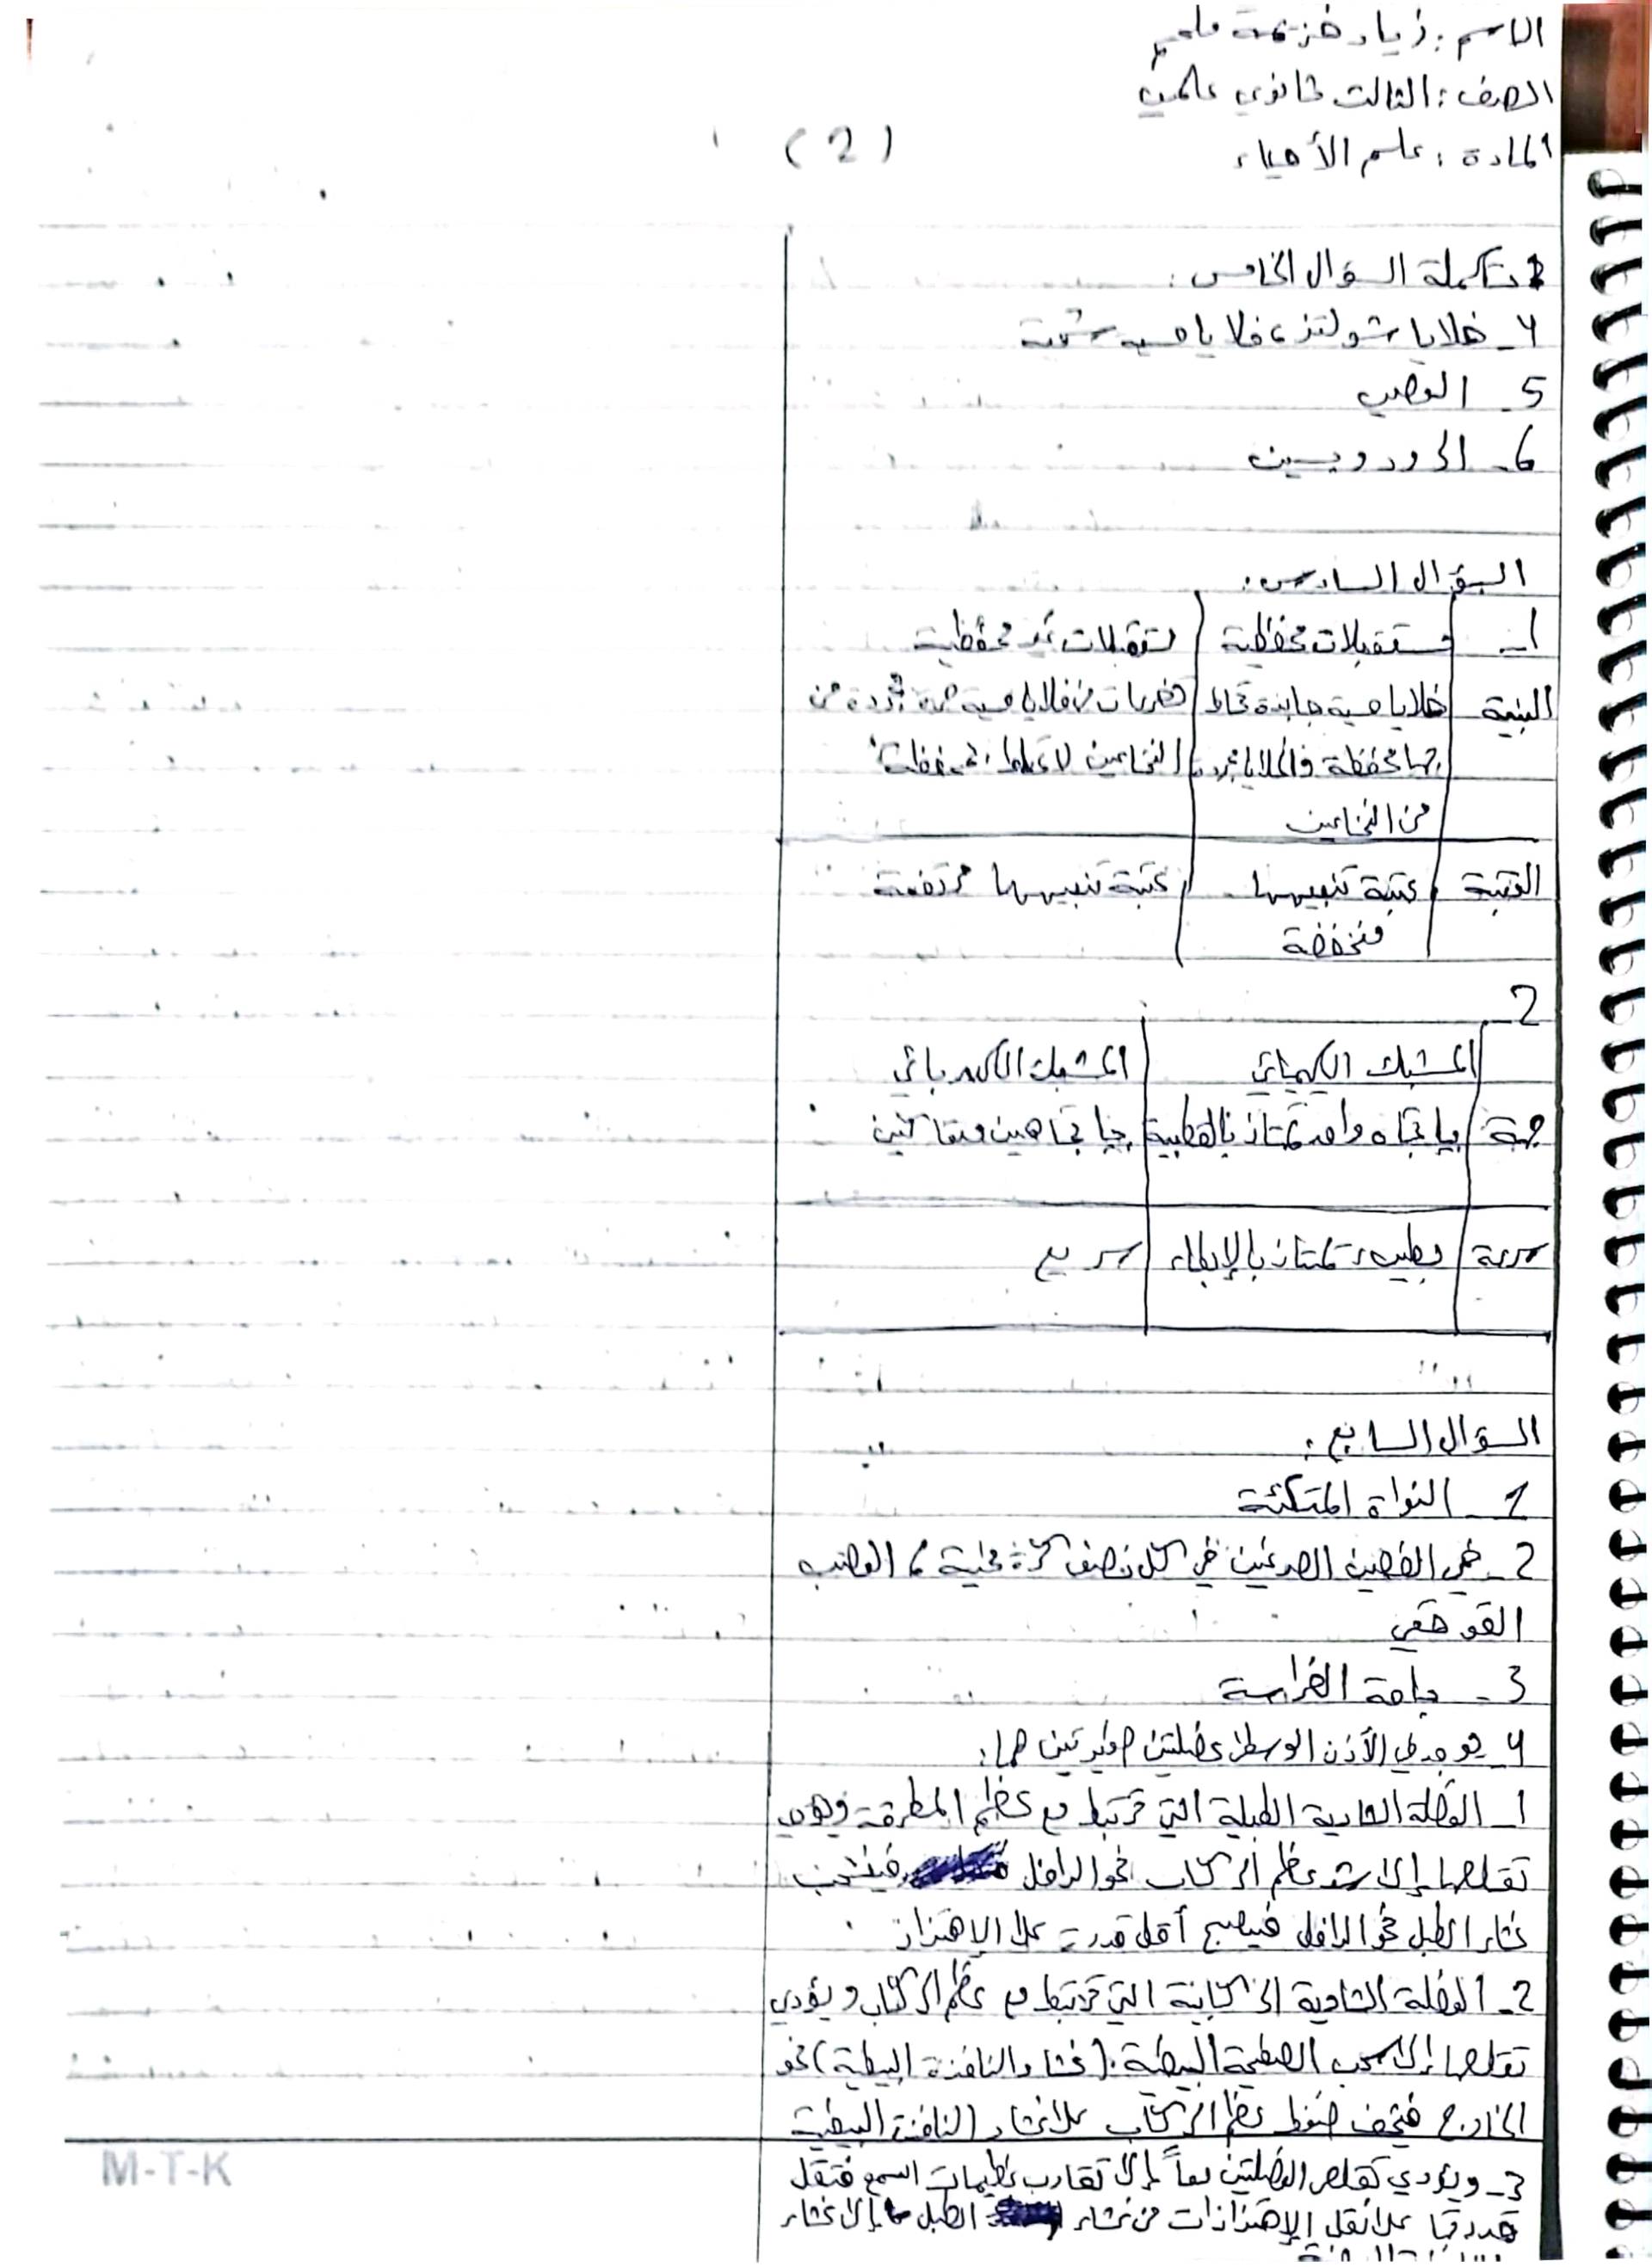 الاسم : زياد خزيمة ملحم
الصف : الثالث ثانوي علمي
المادة : علم الأحياء
(2)
تكملة السؤال الخامس :
4_ خلايا شولتز ، خلايا حسية شمية
5_ العصب
6_ الرودوبسين
السؤال السادس :
1_ مستقبلات محفظية مستقبلات غير محفظية
البنية خلايا حسية جابذة تحاط تفرعات من خلايا حسية مجردة من
بها محفظة والخلايا مجردة النخاعين لا تحاط بمحفظة
من النخاعين
العتبة عتبة تنبيهها عتبة تنبيهها مرتفعة
منخفضة
2_
المشبك الكيميائي المشبك الكهربائي
جهة باتجاه واحد تمتاز بالقطبية باتجاهين متعاكسين
سرعة بطيء تمتاز بالإبطاء سريع
السؤال السابع :
1_ النواة المتكئة
2_ في الفصين الصدغيين في كل نصف كرة مخية ، العصب
القوقعي
3_ باحة الفراسة
4_ يوجد في الأذن الوسطى عضلتين صغيرتين هما :
1_ العضلة الشادية الطبلية التي ترتبط مع عظم المطرقة ويؤدي
تقلصها إلى شد عظم الركاب نحو الداخل فينسحب
غشاء الطبل نحو الداخل فيصبح أقل قدرة على الاهتزاز
2_ العضلة الشادية الركابية التي ترتبط مع عظم الركاب ويؤدي
تقلصها إلى سحب الصفيحة البيضية (غشاء النافذة البيضية) نحو
الخارج فيخف ضغط عظم الركاب على غشاء النافذة البيضية
3_ ويؤدي تقلص العضلتين معاً إلى تقارب عظيمات السمع فتقل
قدرتها على نقل الإهتزازات من غشاء الطبل إلى غشاء
M-T-K